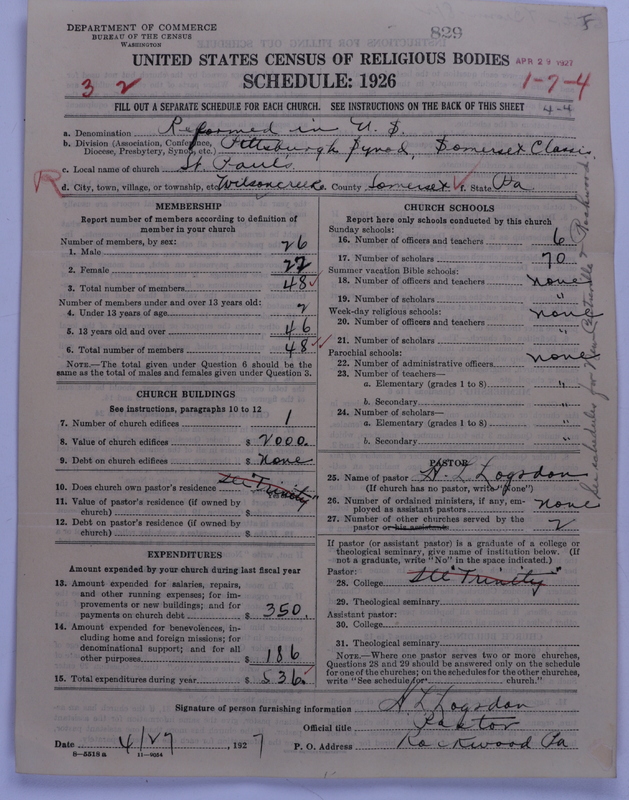 DEPARTMENT OF COMMERCE
BUREAU OF THE CENSUS
WASHINGTON
829
UNITED STATES CENSUS OF RELIGIOUS BODIES
APR 29 1927
SCHEDULE: 1926
3 2
1-7-4
FILL OUT A SEPARATE SCHEDULE FOR EACH CHURCH. SEE INSTRUCTIONS ON THE BACK OF THIS SHEET
4-4
a. Denomination Reformed in U. S.
b. Division (Association, Conference, Diocese, Presbytery, Synod, etc.) Pittsburgh Synod, Somerset Classis
c. Local name of church St. Pauls
R d. City, town, village, or township, etc. Wilsoncreek e. County Somerset f. State Pa
MEMBERSHIP
Report number of members according to definition of member in your church
Number of members, by sex:
1. Male 26
2. Female 22
3. Total number of members 48
Number of members under and over 13 years old:
4. Under 13 years of age 2
5. 13 years old and over 46
6. Total number of members 48
NOTE.—The total given under Question 6 should be the same as the total of males and females given under Question 3.
CHURCH BUILDINGS
See instructions, paragraphs 10 to 12
7. Number of church edifices 1
8. Value of church edifices $ 2000.
9. Debt on church edifices $ none
10. Does church own pastor's residence See "Trinity"
11. Value of pastor's residence (if owned by church) $
12. Debt on pastor's residence (if owned by church) $
EXPENDITURES
Amount expended by your church during last fiscal year
13. Amount expended for salaries, repairs, and other running expenses; for improvements or new buildings; and for payments on church debt $ 350.
14. Amount expended for benevolences, including home and foreign missions; for denominational support; and for all other purposes $ 186
15. Total expenditures during year $ 536.
CHURCH SCHOOLS
Report here only schools conducted by this church
Sunday schools:
16. Number of officers and teachers 6
17. Number of scholars 70
Summer vacation Bible schools:
18. Number of officers and teachers none
19. Number of scholars "
Week-day religious schools:
20. Number of officers and teachers none
21. Number of scholars "
Parochial schools:
22. Number of administrative officers none
23. Number of teachers—
a. Elementary (grades 1 to 8) "
b. Secondary "
24. Number of scholars—
a. Elementary (grades 1 to 8) "
b. Secondary "
See schedules for New Centerville & Rockwood
PASTOR
25. Name of pastor H. L. Logsdon
(If church has no pastor, write "None")
26. Number of ordained ministers, if any, employed as assistant pastors none
27. Number of other churches served by the pastor or his assistants 2
If pastor (or assistant pastor) is a graduate of a college or theological seminary, give name of institution below. (If not a graduate, write "No" in the space indicated.)
Pastor:
28. College See "Trinity"
29. Theological seminary
Assistant pastor:
30. College
31. Theological seminary
NOTE.—Where one pastor serves two or more churches, Questions 28 and 29 should be answered only on the schedule for one of the churches; on the schedules for the other churches, write "See schedule for church."
Signature of person furnishing information H L Logsdon
Official title Pastor
Date 4/27, 1927 P. O. Address Rockwood Pa
8-5518a 11-9054